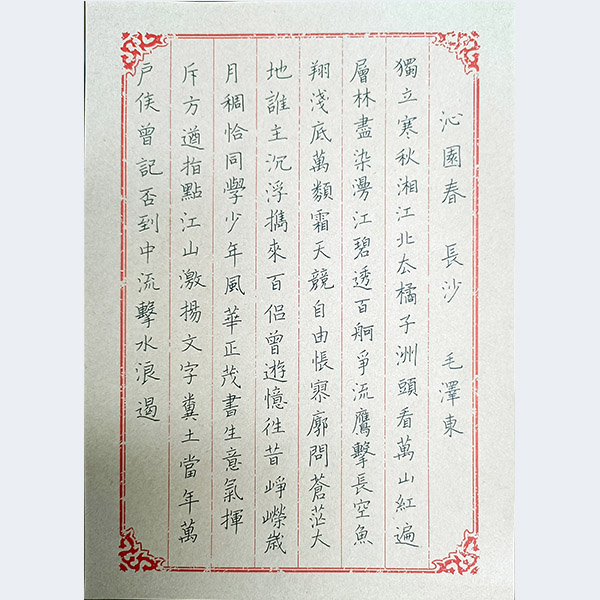 沁園春 長沙 毛澤東
獨立寒秋湘江北去橘子洲頭看萬山紅遍
層林盡染漫江碧透百舸爭流鷹擊長空魚
翔淺底萬類霜天競自由悵寥廓問蒼茫大
地誰主沉浮攜來百侣曾遊憶往昔崢嶸歲
月稠恰同學少年風華正茂書生意氣揮
斥方遒指點江山激揚文字糞土當年萬
戶侯曾記否到中流擊水浪遏